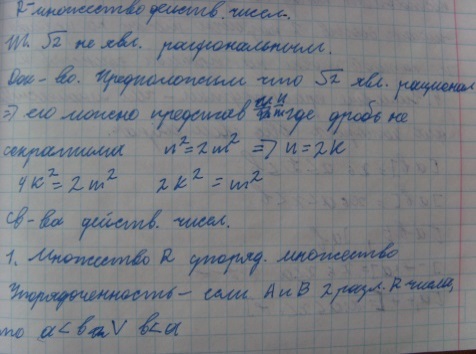 R-множество действ. чисел.
Т. √2 не явл. рациональным.
Док-во. Предположим что √2 явл. рационал
⇒ его можно представ n/m где дробь не
сократима n²=2m² ⇒ n=2k
4k²=2m² 2k²=m²
Св-ва действ. чисел.
1. Множество R упоряд. множество
Упорядоченность - если A и B 2 разл. R числа,
то a<b ∨ b<a